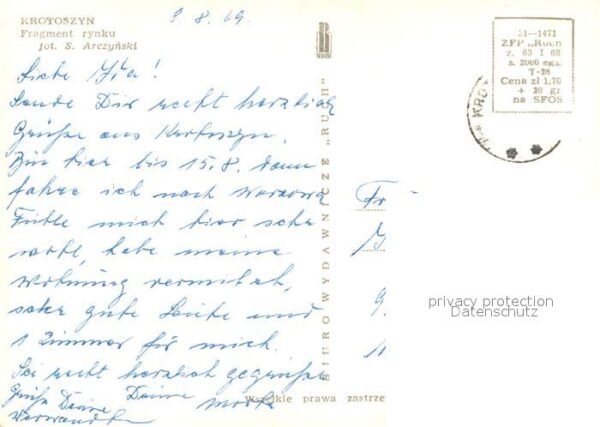 KROTOSZYN
Fragment rynku
fot. S. Arczyński
9.8.69.
Liebe Ida!
Sende Dir recht herzlich
Grüße aus Krotoszyn.
Bin hier bis 15.8. dann
fahre ich nach Warszawa
Fühle mich hier sehr
wohl, habe meine
Wohnung vermitet,
sehr gute Leute und
1 Zimmer für mich.
Sei recht herzlich gegrüßt
Grüße Deine Deine
Verwandte
BIURO WYDAWNICZE „RUCH"
Fr
31—1471
ZFP „Ruch
z. 63 I 68
s. 2000 egz.
T-26
Cena zł 1,70
+ 20 gr
na SFOS
KRO
privacy protection
Datenschutz
Wszelkie prawa zastrze